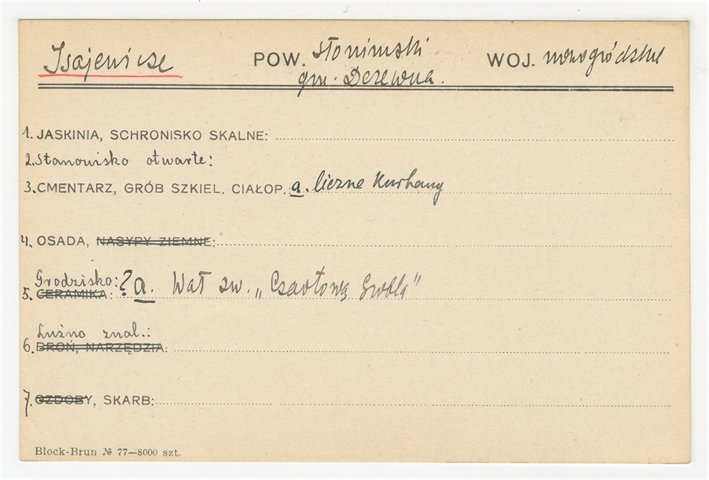 Isajewicze POW. słonimski WOJ. nowogródzkie
gm. Derewna.
1. JASKINIA, SCHRONISKO SKALNE:
2. Stanowisko otwarte:
3. CMENTARZ, GRÓB SZKIEL. CIAŁOP. a. liczne kurhany
4. OSADA, NASYPY ZIEMNE:
Grodzisko: ? a. Wał zw. „Czartową Groblą"
5. CERAMIKA:
Luźno znal.:
6. BROŃ, NARZĘDZIA:
7. OZDOBY, SKARB:
Block-Brun № 77—8000 szt.